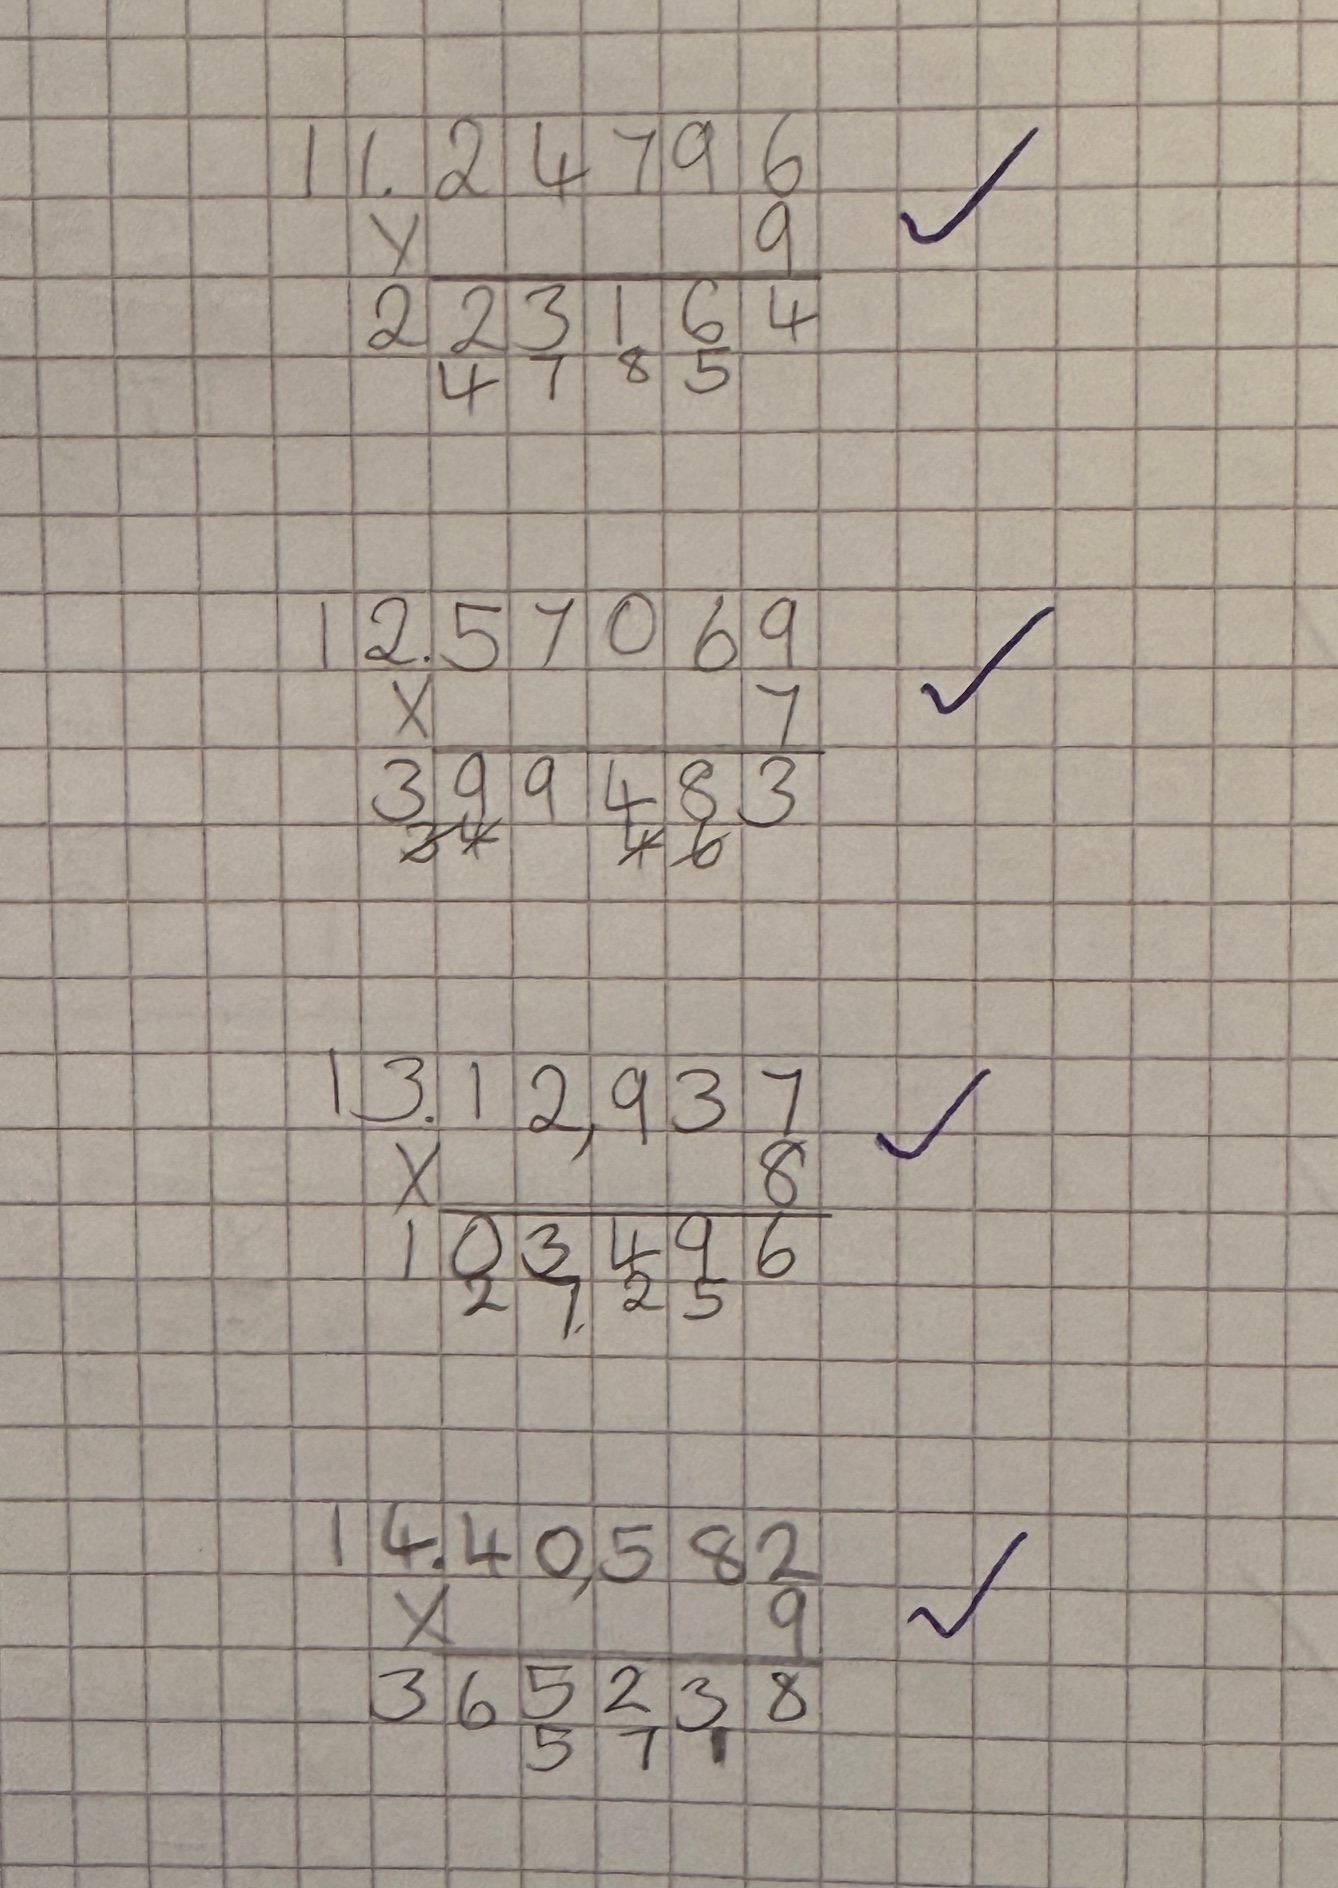 11. 2 4 7 9 6
x 9
2 2 3 1 6 4
4 7 8 5
12. 5 7 0 6 9
x 7
3 9 9 4 8 3
3 4 4 6
13. 1 2,9 3 7
x 8
1 0 3,4 9 6
2 7, 2 5
14. 4 0,5 8 2
x 9
3 6 5 2 3 8
5 7 1